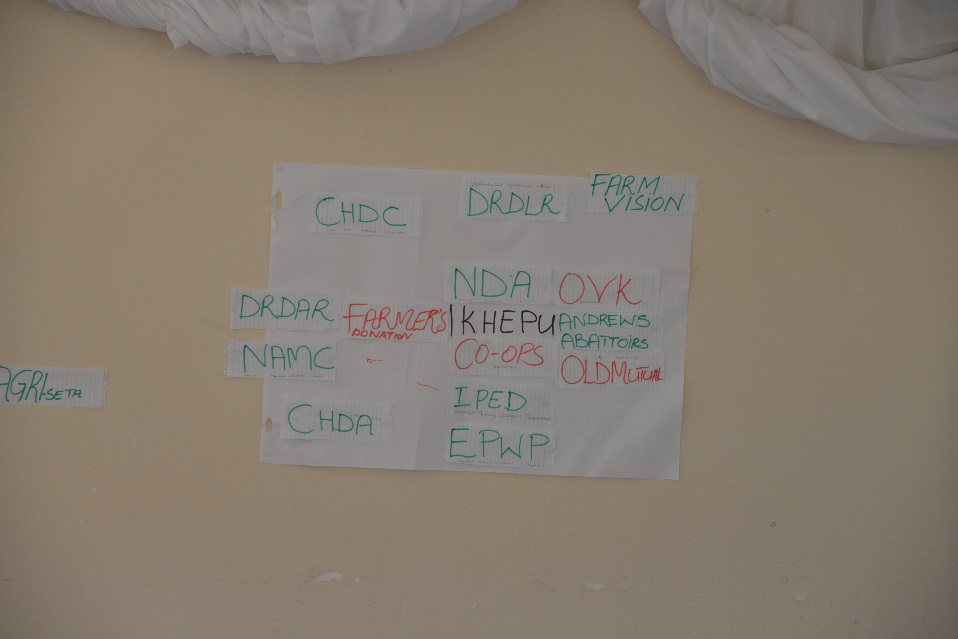 CHDC
DRDLR
FARM
VISION
NDA
OVK
DRDAR
FARMER'S
DONATION
IKHEPU
ANDREWS
ABATTOIRS
NAMC
CO-OPS
OLDMUTUAL
AGRI-SETA
IPED
CHDA
EPWP